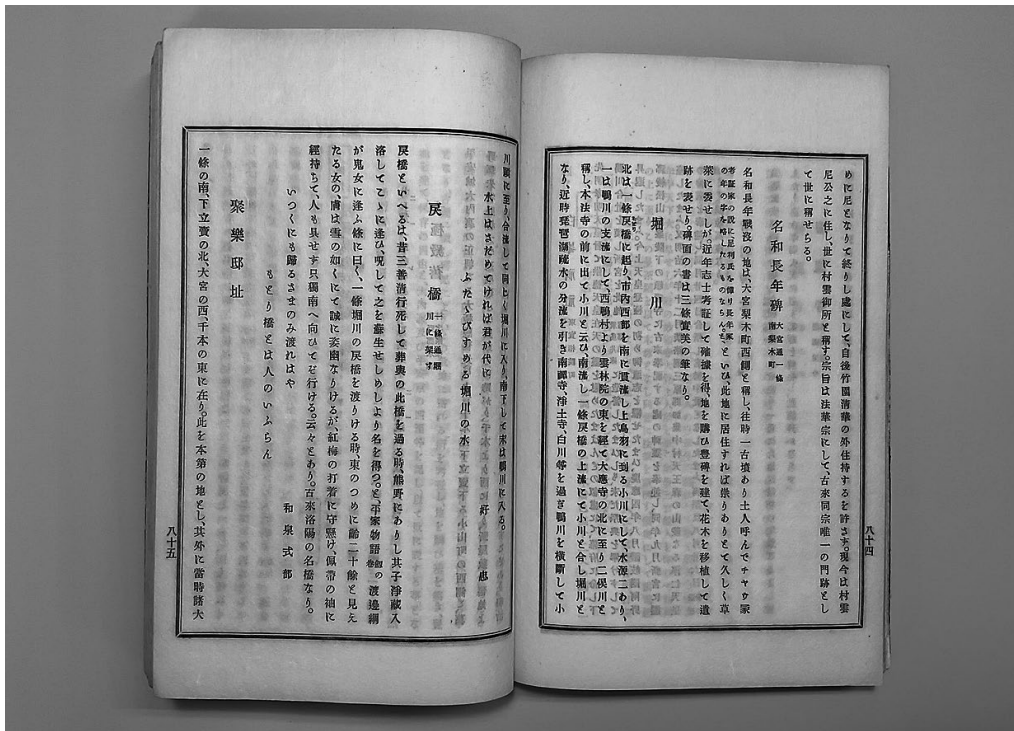 めに尼となりて終りし處にして、自後竹園清華の外住持するを許さす。現今は村雲
尼公之に住し、世に村雲御所と稱す。宗旨は法華宗にして、古來同宗唯一の門跡とし
て世に稱せらる。
名和長年碑 大宮通一條南梨木町
名和長年戰歿の地は、大宮梨木町西側と稱し、往時一古墳あり土人呼んでチヤウ家
考証家の説に足利氏を憚り長年家の年の字を略したるものならん。といひ、此地に居住すれば祟りありとて久しく草
萊に委せしが。近年志士考証して確據を得、地を購ひ豊碑を建て、花木を移植して遺
跡を表せり。碑面の書は三條實美の筆なり。
堀川
北は一條戻橋に起り、市内西部を南に貫流し上鳥羽に到る小川にして、水源二あり、
一は鴨川の支流にして、西鴨村より雲林院の東を經て大應寺の北に至り二俣川と
稱し、本法寺の前に出て小川と云ひ、南流し一條戻橋の上流にて今出川と合し堀川と
なり、近時琵琶湖疏水の分流を引き南禪寺、淨土寺、白川等を過ぎ鴨川を橫斷して小
八十四
川頭に至り、合流して同しく堀川に入り、南下して末は鴨川に入る。
水上はさだめてければ君が代に
ふたゝびすめる堀川の水
好忠
戻橋 一條通堀川に架す
戻橋といへるは、昔三善清行死して葬輿の此橋を過る時、熊野にありし其子淨藏入
洛してこゝに逢ひ、呪して之を蘇生せしめしより名を得つ。と、平家物語劍の卷の渡邊綱
が鬼女に逢ふ條に曰く、一條堀川の戻橋を渡りける時、東のつめに齡二十餘と見え
たる女の、膚は雪の如くにて誠に姿幽なりけるが、紅梅の打着に守懸け、佩帶の袖に
經持ちて人も具せす只獨南へ向ひてぞ行ける。云々とあり。古來洛陽の名橋なり。
いつくにも歸るさまのみ渡ればや
もどり橋とは人のいふらん
和泉式部
聚樂邸址
一條の南、下立賣の北、大宮の西、千本の東に在り。此を本第の地とし、其外に當時諸大
八十五